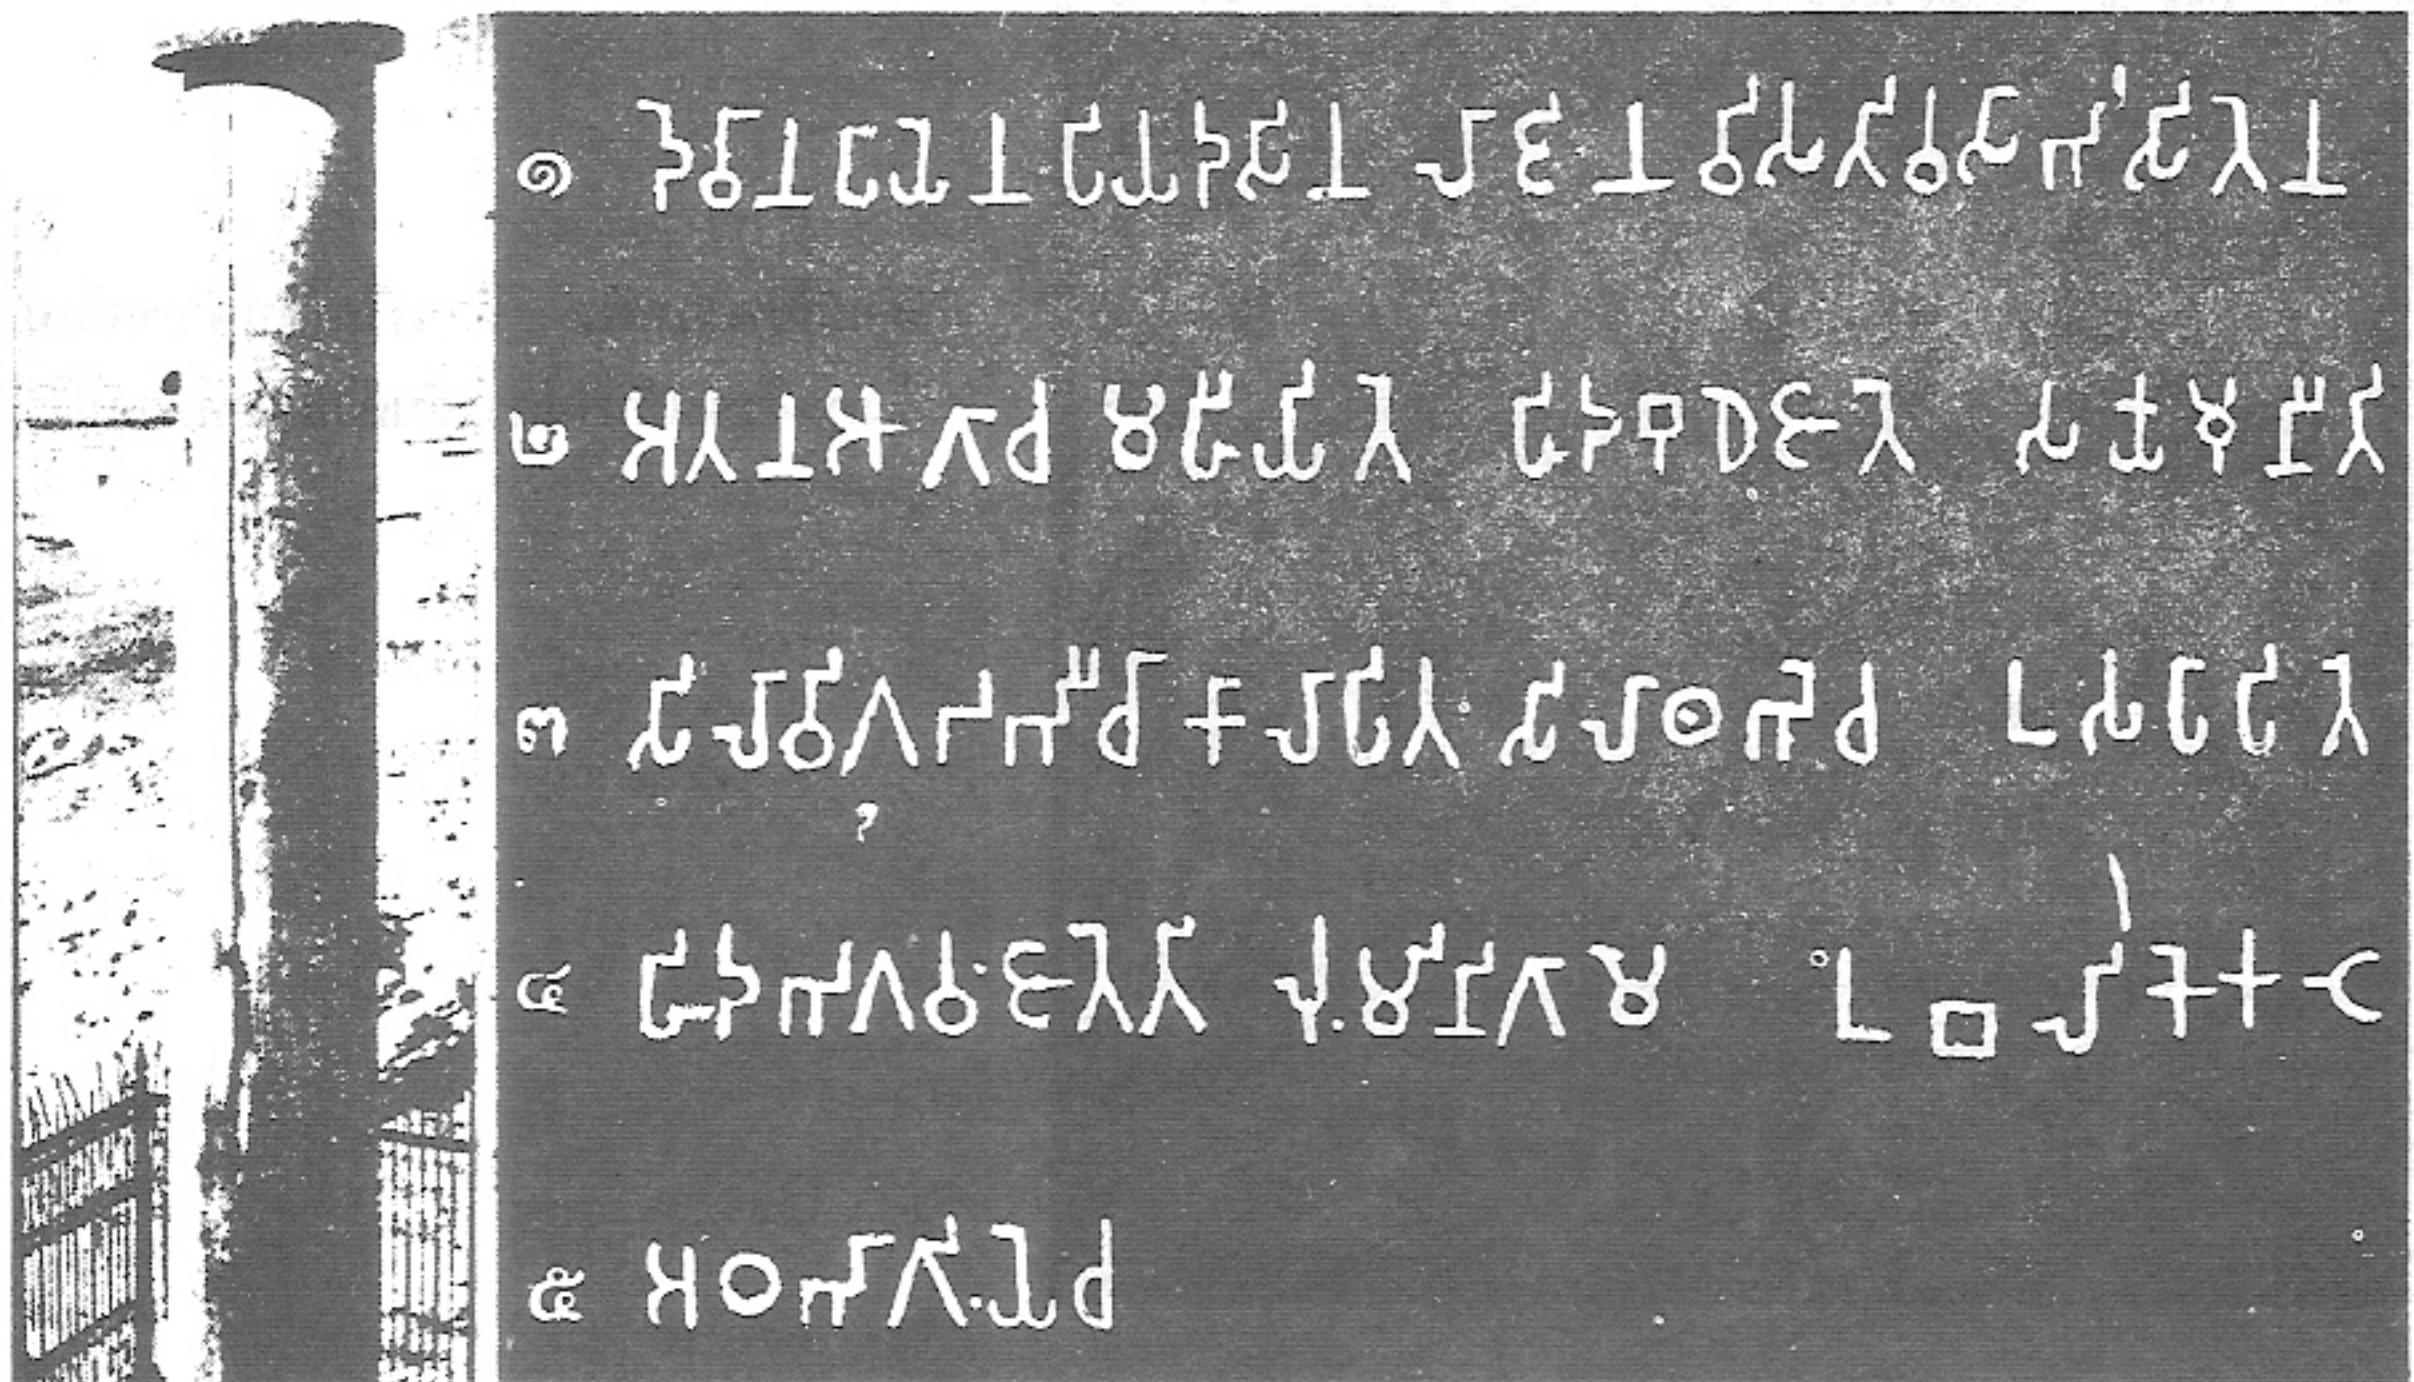 ๑ 𑀤𑁂𑀯𑀸𑀦𑀧𑀺𑀬𑁂𑀦 𑀧𑀺𑀬𑀤𑀲𑀺𑀦 𑀮𑀸𑀚𑀺𑀦 𑀯𑀻𑀲𑀢𑀺𑀯𑀲𑀸𑀪𑀺𑀲𑀺𑀢𑁂𑀦
๒ 𑀅𑀢𑀦𑀆𑀕𑀸𑀘 𑀫𑀳𑀻𑀬𑀺𑀢𑁂 𑀳𑀺𑀤𑀩𑀼𑀥𑁂𑀚𑀸𑀢𑁂 𑀲𑀓𑁆𑀬𑀫𑀼𑀦𑀻𑀢𑀺
๓ 𑀲𑀺𑀮𑀸𑀯𑀺𑀕𑀟𑀪𑀻𑀘𑀸𑀓𑀸𑀮𑀸𑀧𑀺𑀢 𑀲𑀺𑀮𑀸𑀣𑀪𑁂𑀘 𑀉𑀲𑀧𑀸𑀧𑀺𑀢𑁂
๔ 𑀳𑀺𑀤𑀪𑀕𑀯𑀁𑀚𑀸𑀢𑁂𑀢𑀺 𑀮𑀼𑀁𑀫𑀺𑀦𑀺𑀕𑀸𑀫𑁂 𑀉𑀩𑀮𑀺𑀓𑁂𑀓𑀝𑁂
๕ 𑀅𑀞𑀪𑀸𑀕𑀺𑀬𑁂𑀘